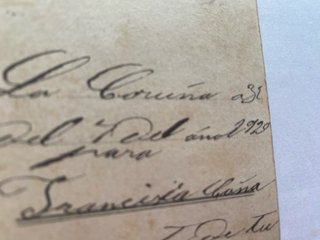 La Coruña 31
del 7 del año 1929
para
Francisca Caña
7 de tu